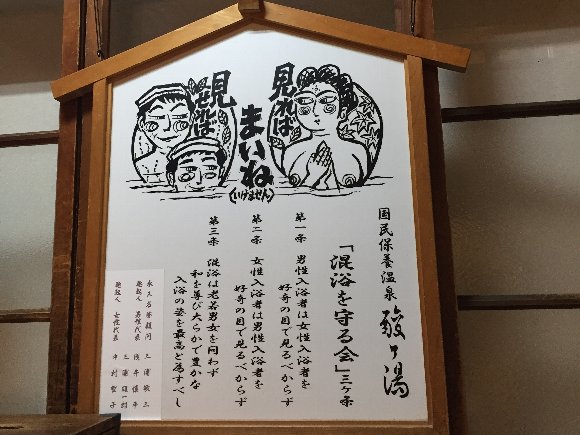 見れば
見せれば
まいね
(いけません)
国民保養温泉 酸ヶ湯
「混浴を守る会」三ヶ条
第一条 男性入浴者は女性入浴者を
好奇の目で見るべからず
第二条 女性入浴者は男性入浴者を
好奇の目で見るべからず
第三条 混浴は老若男女を問わず
和を尊び大らかで豊かな
入浴の姿を最高と為すべし
永久名誉顧問 三浦敬三
発起人 男性代表
三浦雄一郎
発起人 女性代表